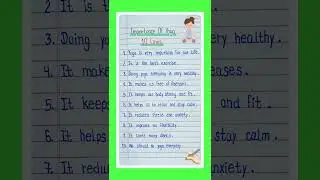 Importance Of Yoga
10 Lines
1. Yoga is very important for our life.
2. It is the best exercise.
3. Doing yoga everyday is very healthy.
4. It makes us free of diseases.
5. It keeps our body strong and fit.
6. It helps us to relax and stay calm.
7. It reduces stress and anxiety.
8. It improves our flexibility.
9. It
10. We should do yoga everyday.
2. It is t
3. Doing yo
4. It makes
5. It keeps
6. It helps
7. It reduc
very healthy.
eases.
and fit.
stay calm.
nxiety.